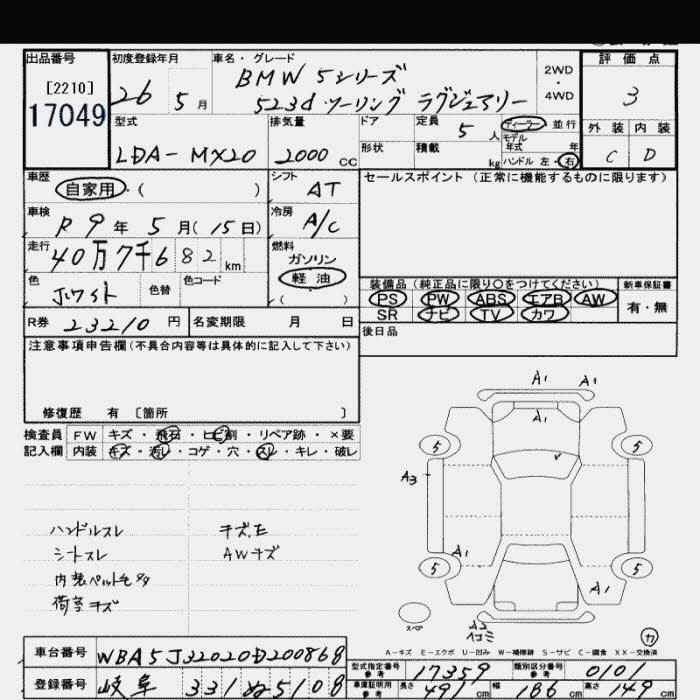 出品番号
[2210]
17049
初度登録年月
26 5 月
車名・グレード
BMW 5シリーズ
523d ツーリング ラグジュアリー
2WD
・
4WD
評価点
3
外装 内装
C D
型式
LDA-MX20
排気量
2000 CC
ドア
形状
定員
5 人
積載
kg
ディーラー 並行
モデル
年式 年
ハンドル 左・右
車歴
自家用・( )
シフト
AT
車検
R 9 年 5 月(15日)
冷房
A/C
走行
40万7千682 km
燃料
ガソリン
軽油
( )
色
ホワイト
色替
色コード
R券 23210 円
名変期限 月 日
セールスポイント(正常に機能するものに限ります)
装備品(純正品に限り○をつけてください)
PS PW ABS エアB AW
SR ナビ TV カワ
新車保証書
有・無
後日品
注意事項申告欄(不具合内容等は具体的に記入して下さい)
修復歴 有 〔箇所 〕
検査員 FW キズ・飛石・ヒビ割・リペア跡・×要
記入欄 内装 キズ・汚レ・コゲ・穴・スレ・キレ・破レ
ハンドルスレ
シートスレ
内装ペット毛多
荷室キズ
キズ,E
AWキズ
A1
A1
A1
5
5
A3
A1
5
5
A1
スペア
A2
カ
A-キズ E-エクボ U-凹み W-補修跡 S-サビ C-腐食 XX-交換済
車台番号 WBA5J32020D200868
登録番号 岐阜 331ぬ5108
型式指定番号
参考
17359
類別区分番号
参考
0101
車庫証明用
参考
長さ 491 cm
幅 186 cm
高さ 149 cm